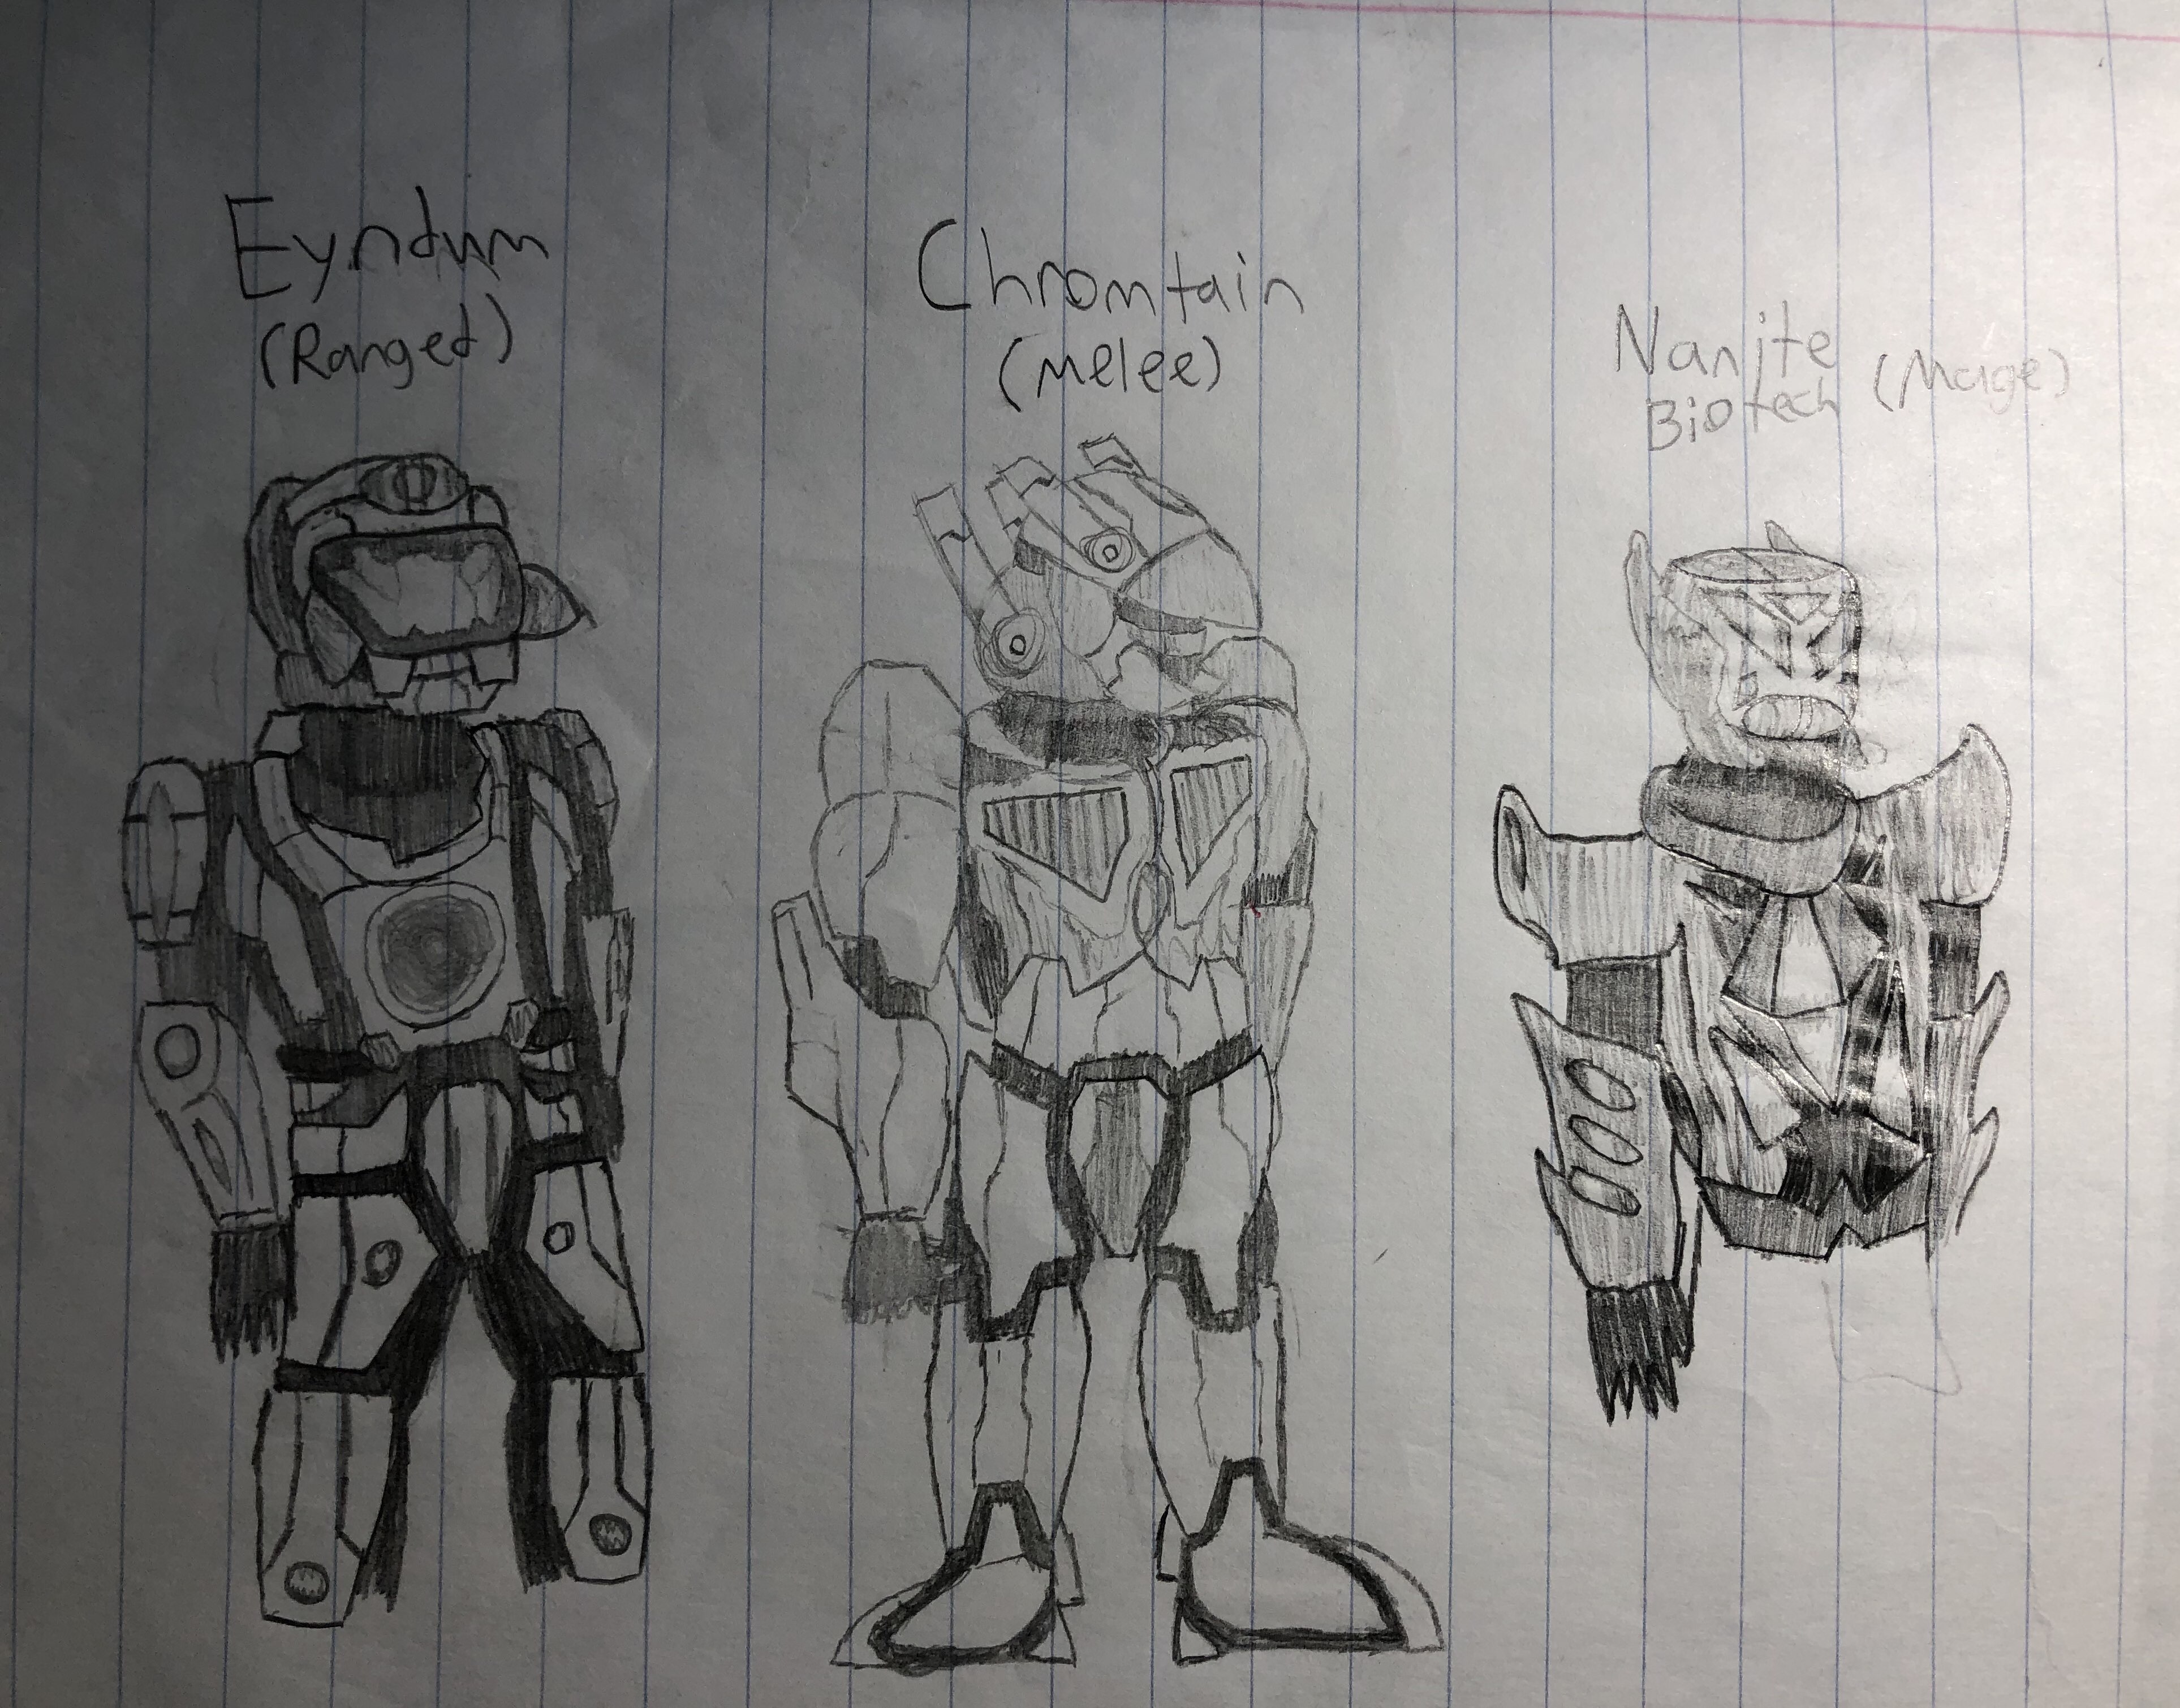 Eyndum
(Ranged)
Chromtain
(Melee)
Nanite (Mage)
Biotech